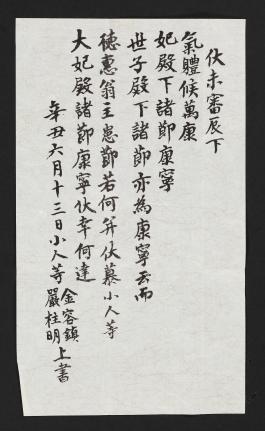 伏未審辰下
氣體候萬康
妃殿下諸節康寧
世子殿下諸節亦為康寧云而
德惠翁主患節若何并伏慕小人等
大妃殿諸節康寧伏幸何達
辛丑六月十三日小人等
金容鎮
嚴柱明
上書